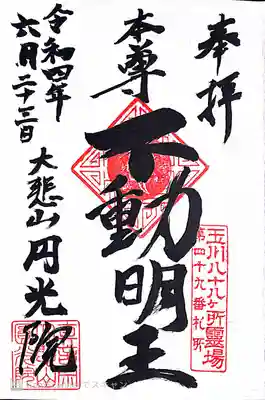 奉拝
玉川八十八ヶ所霊場
第四十九番札所
本尊
不動明王
大悲山円光院
令和四年
六月二十三日
でスキャン